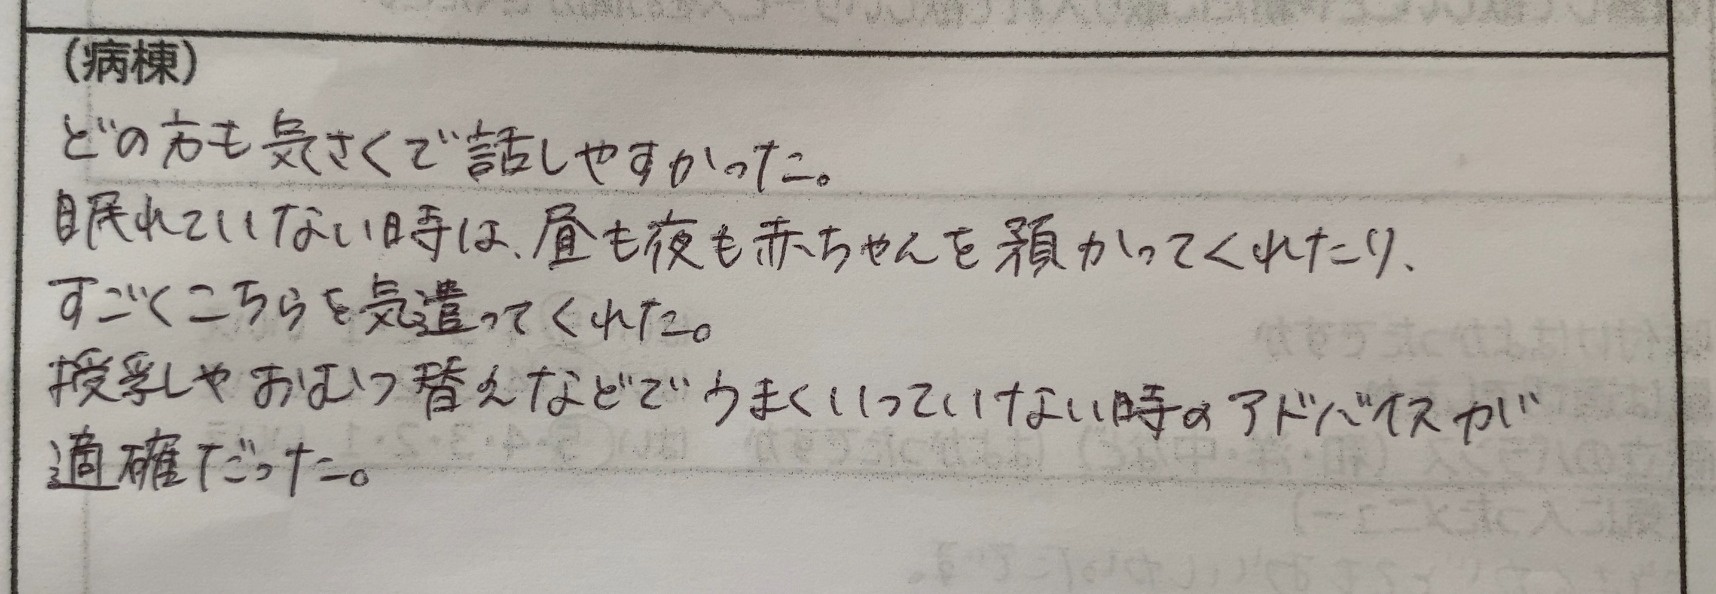 (病棟)
どの方も気さくで話しやすかった。
眠れていない時は、昼も夜も赤ちゃんを預かってくれたり、
すごくこちらを気遣ってくれた。
授乳しやおむつ替えなどでうまくいっていない時のアドバイスが
適確だった。